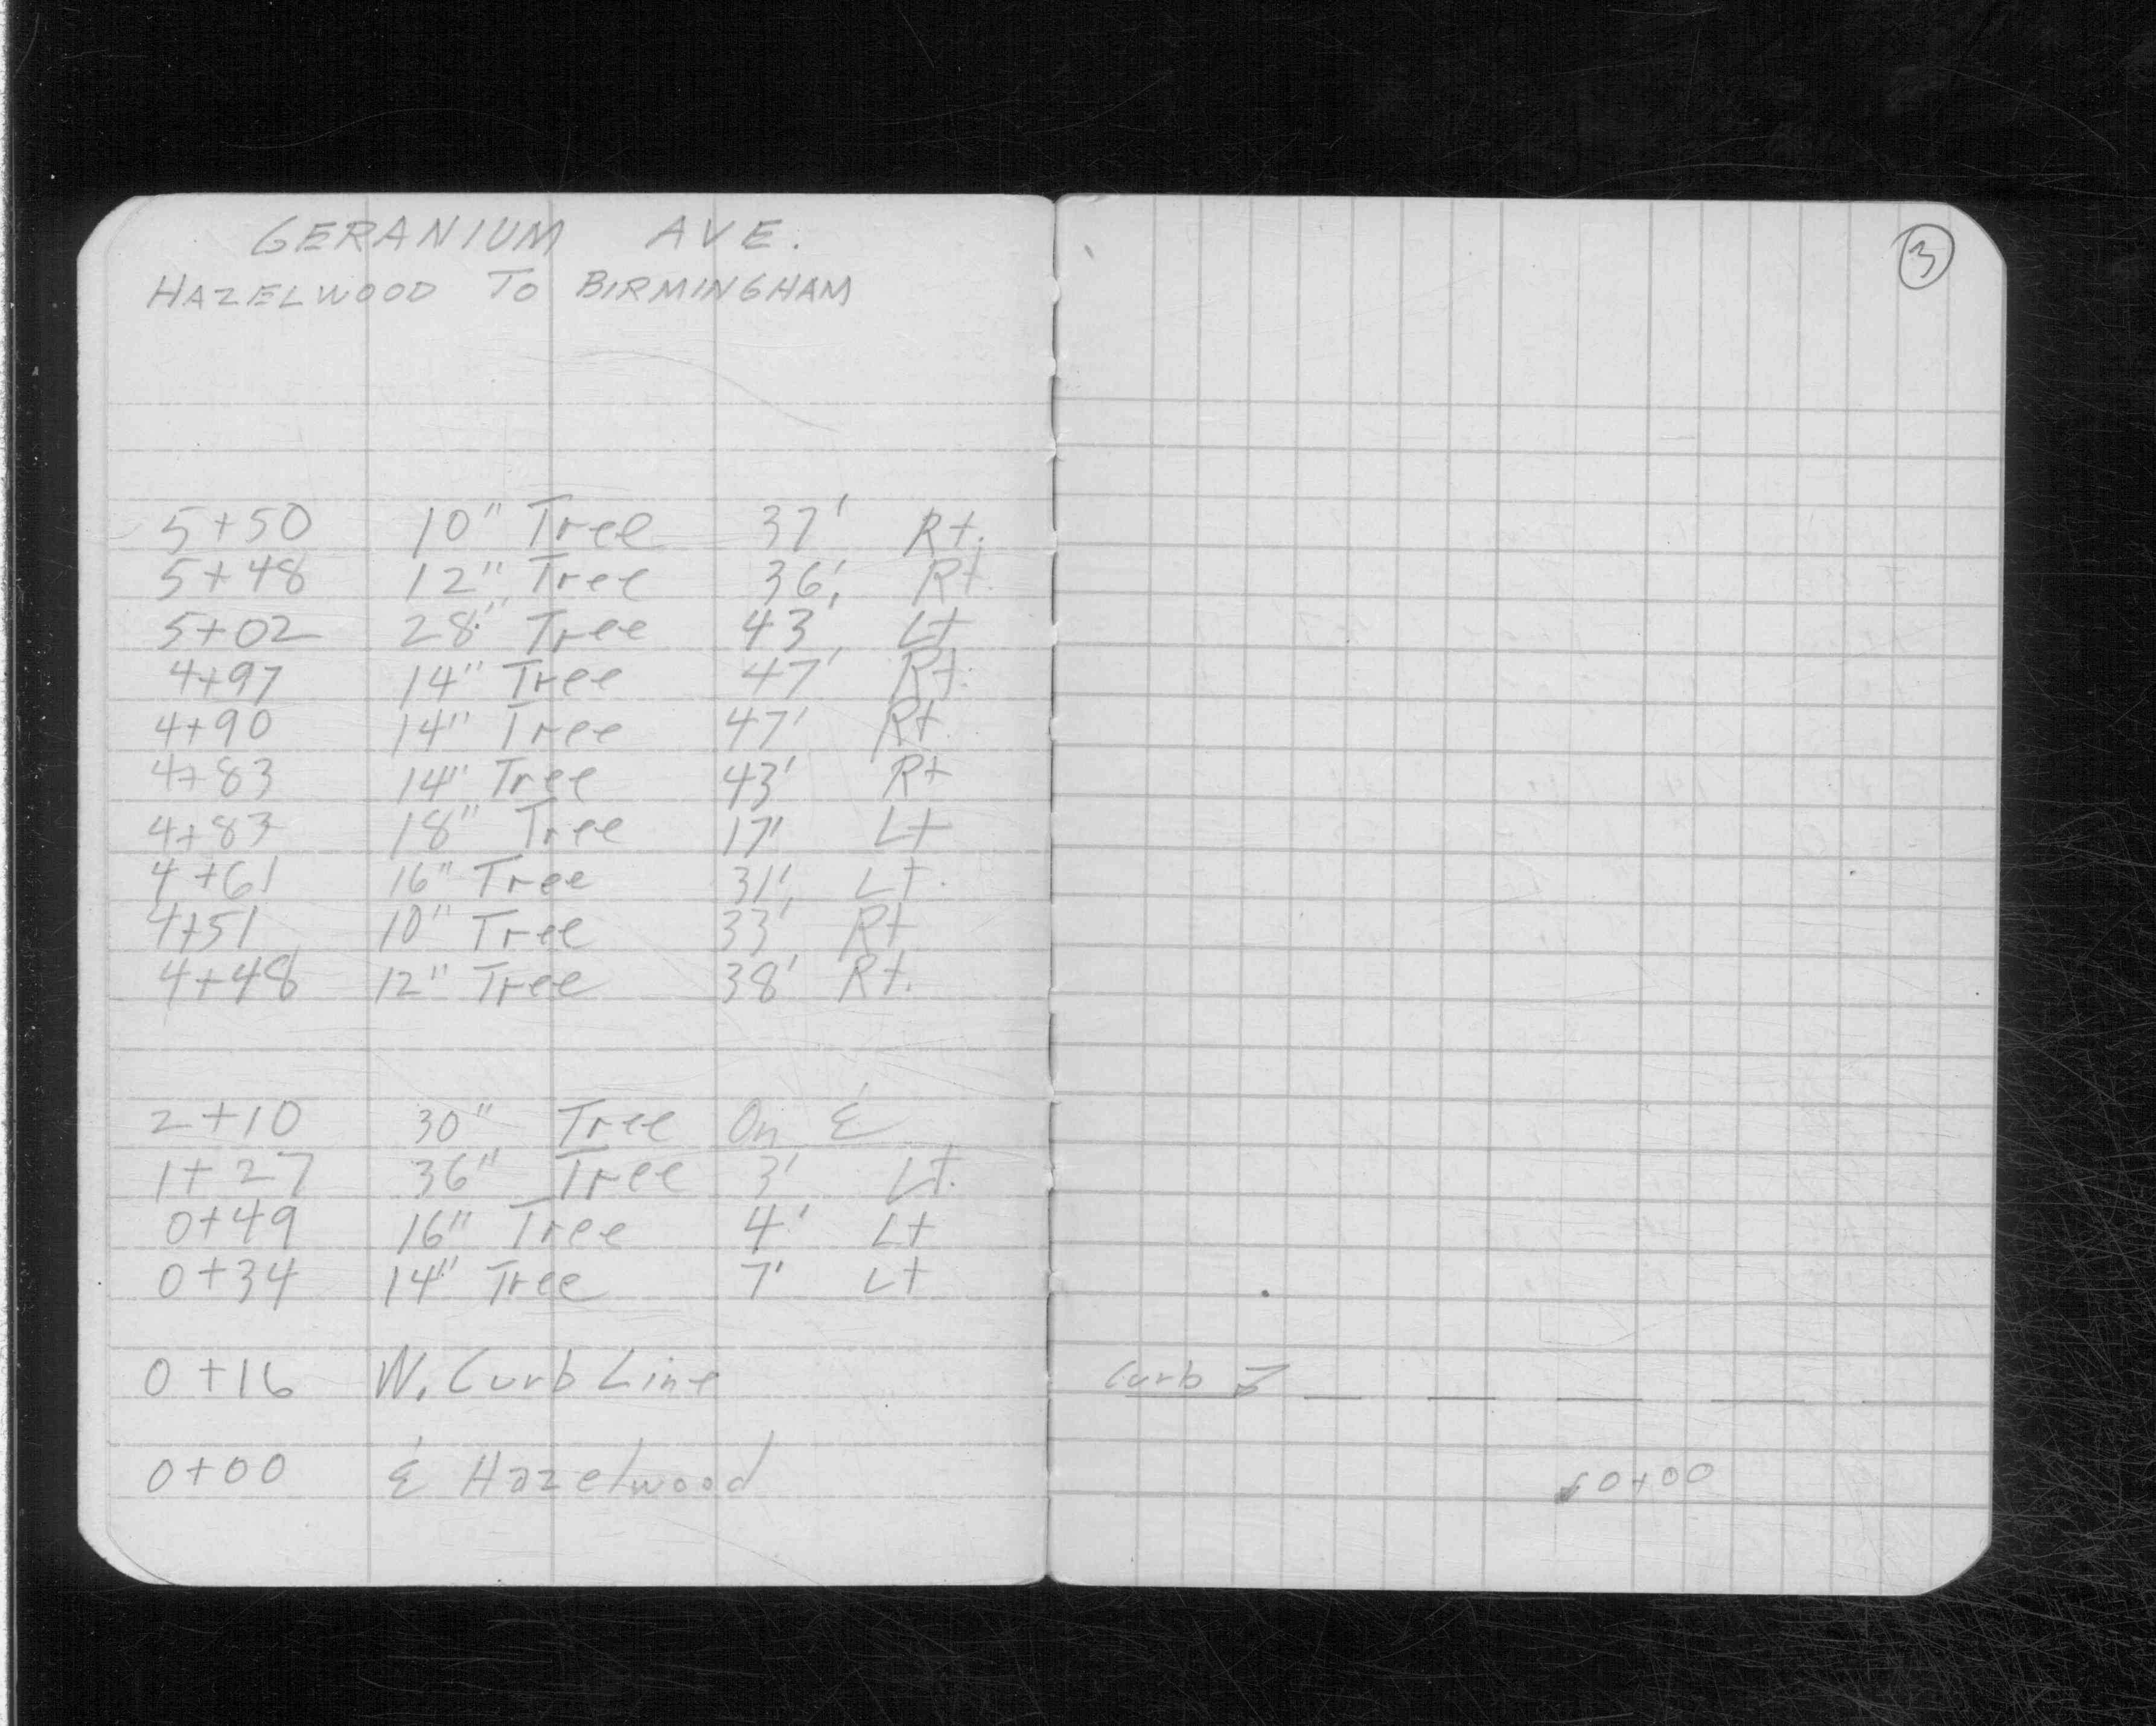 GERANIUM AVE.
HAZELWOOD TO BIRMINGHAM
5+50 10" Tree 37' Rt.
5+48 12" Tree 36' Rt.
5+02 28" Tree 43' Lt
4+97 14" Tree 47' Rt.
4+90 14" Tree 47' Rt
4+83 14" Tree 43' Rt
4+83 18" Tree 17' Lt
4+61 16" Tree 31' Lt.
4+51 10" Tree 33' Rt
4+48 12" Tree 38' Rt.
2+10 30" Tree On ℄
1+27 36" Tree 3' Lt.
0+49 16" Tree 4' Lt
0+34 14" Tree 7' Lt
0+16 W. Curb Line
0+00 ℄ Hazelwood
3
Curb
0+00